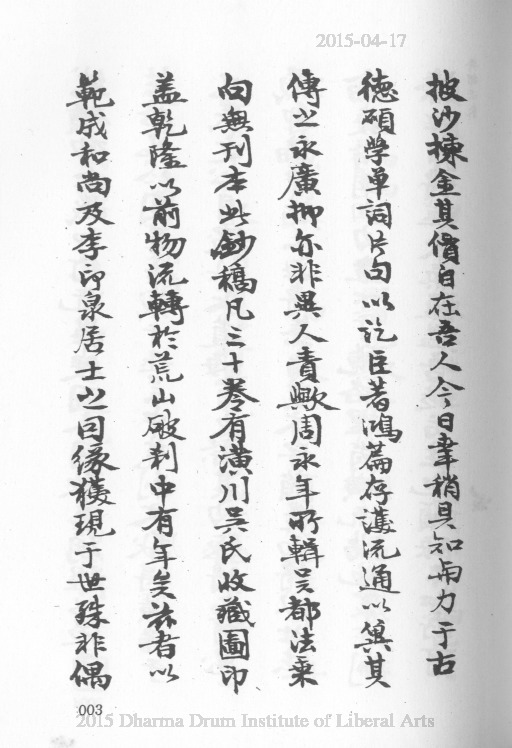 2015-04-17
披沙揀金其價自在吾人今日聿稍具知與力于古
德碩學單詞片句以訖巨著鴻篇存護流通以冀其
傳之永廣抑亦非異人責歟周永年所輯吳都法乘
向無刊本此鈔稿凡三十卷有潢川吳氏收藏圖印
盖乾隆以前物流轉於荒山破刹中有年矣茲者以
範成和尚及李印泉居士之因緣獲現于世殊非偶
003
2015 Dharma Drum Institute of Liberal Arts